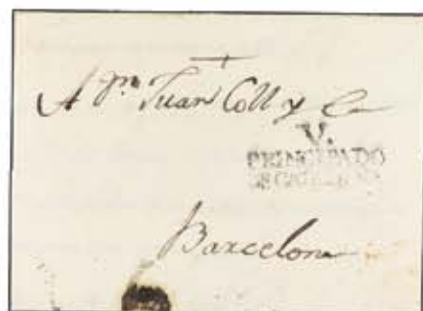 A Dn Juan Coll y Ca
V.
PRINCIPADO
DE CATALUÑA
Barcelona